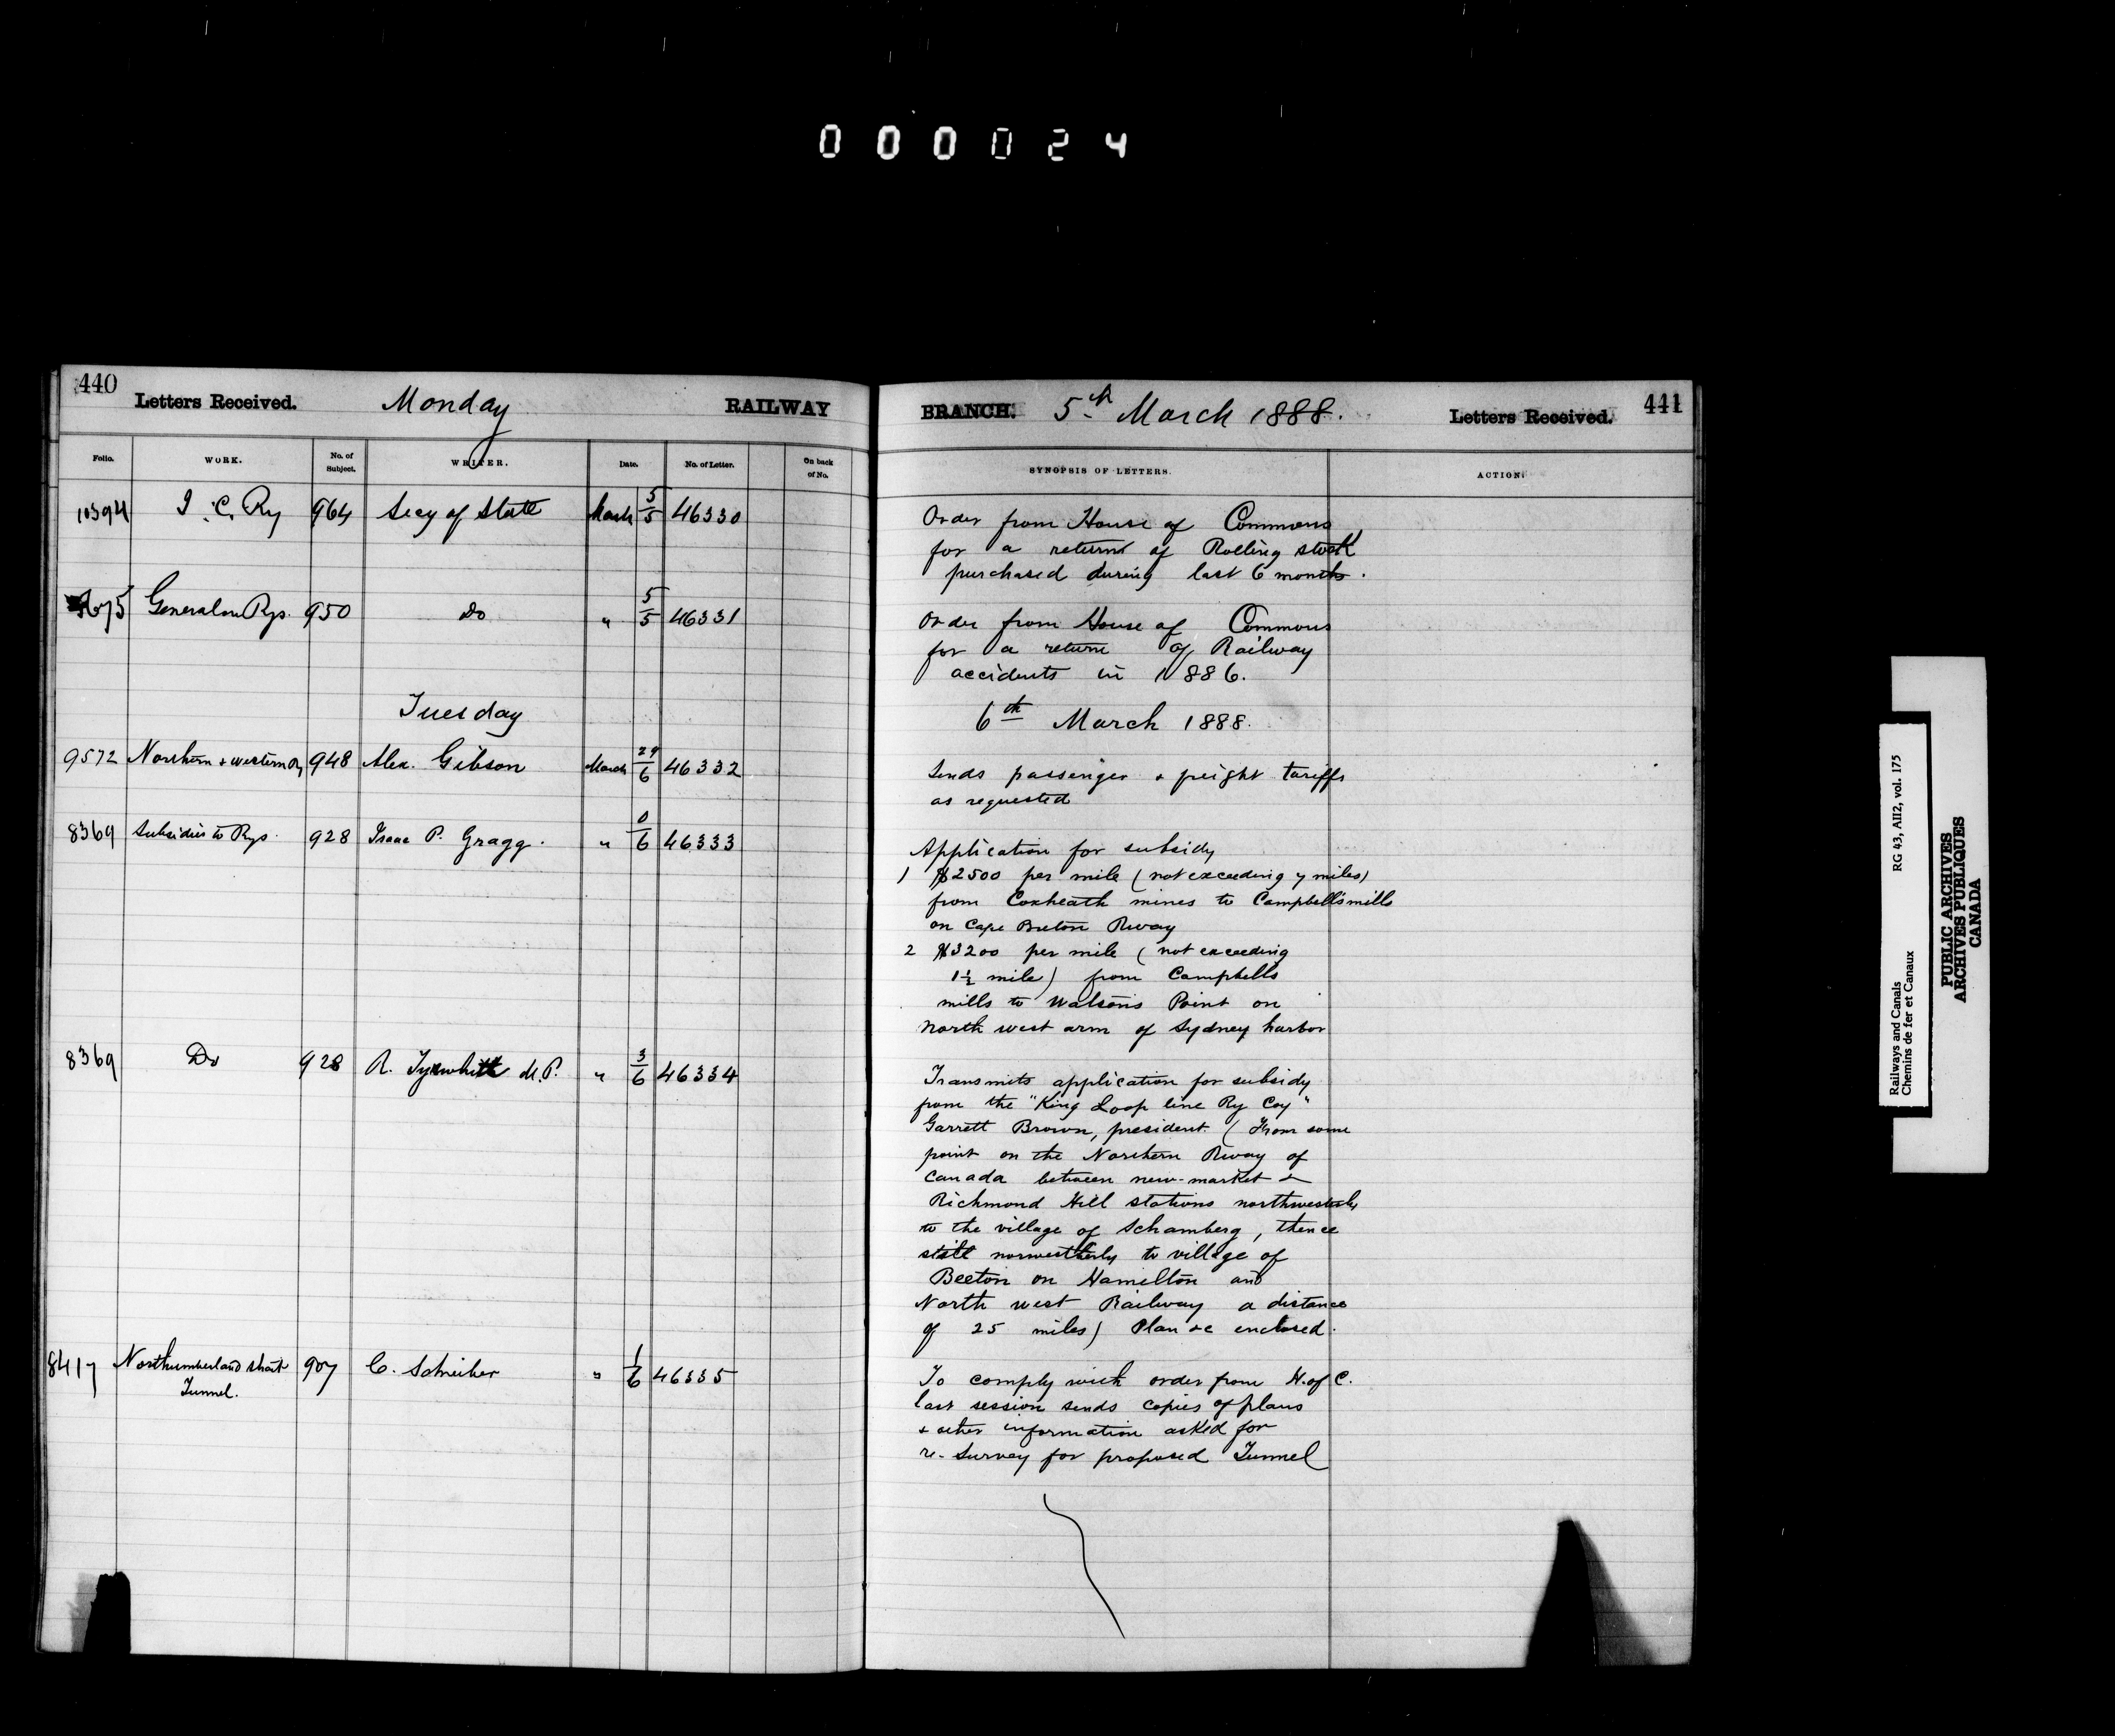 000024
440
Letters Received.
Monday
RAILWAY
Folio.
WORK.
No. of Subject.
WRITER.
Date.
No. of Letter.
On back of No.
10394 I. C. Ry 964 Secy of State March 5/5 46330
General on Rys. 950 Do " 5/5 46331
Tuesday
9572 Northern + Western Ry 948 Alex. Gibson March 29/6 46332
8369 Subsidies to Rys. 928 Isaac P. Gragg. " 0/6 46333
8369 Do 928 R. Tyrwhitt M.P. " 3/6 46334
8417 Northumberland Strait 907 C. Schreiber " 1/6 46335
Tunnel.
BRANCH.
5th March 1888.
Letters Received.
441
SYNOPSIS OF LETTERS.
ACTION.
Order from House of Commons
for a return of Rolling stock
purchased during last 6 months.
Order from House of Commons
for a return of Railway
accidents in 1886.
6th March 1888.
Sends passenger + freight tariffs
as requested
Application for subsidy
1 $2500 per mile (not exceeding 7 miles)
from Coxheath mines to Campbell's mills
on Cape Breton Rway
2 $3200 per mile (not exceeding
1½ mile) from Campbells
mills to Watson's Point on
North west arm of Sydney harbor
Transmits application for subsidy
from the "King Loop line Ry Coy"
Garrett Brown, president. (From some
point on the Northern Rway of
Canada between new-market &
Richmond Hill stations northwesterly
to the village of Schomberg, thence
still norwestherly to village of
Beeton on Hamilton and
North west Railway a distance
of 25 miles) Plan &c enclosed.
To comply with order from H. of C.
last session sends copies of plans
+ other information asked for
re- survey for proposed Tunnel
Railways and Canals RG 43, AII2, vol. 175
Chemins de fer et Canaux
PUBLIC ARCHIVES
ARCHIVES PUBLIQUES
CANADA